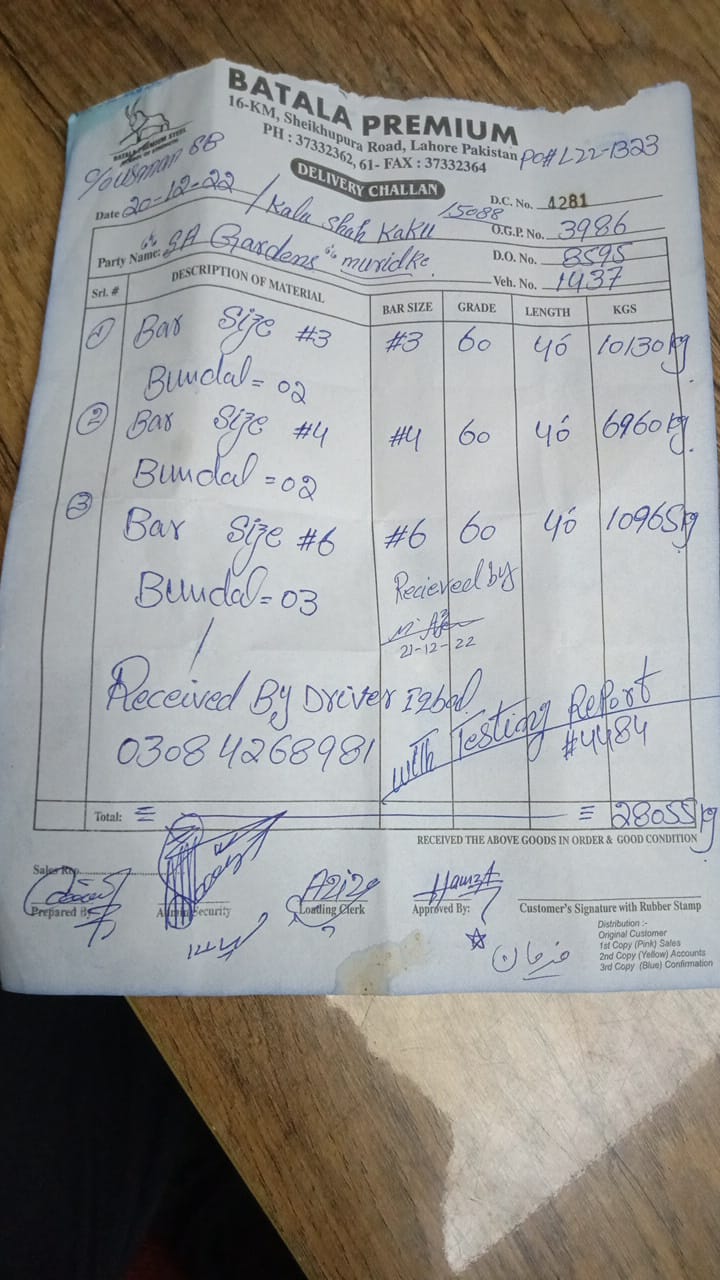 BATALA PREMIUM
16-KM, Sheikhupura Road, Lahore Pakistan
PH : 37332362, 61- FAX : 37332364
BATALA PREMIUM STEEL
C/O USMAN SB
PO# L22-1323
DELIVERY CHALLAN
Date 20-12-22 / Kala Shah Kaku /5088
D.C. No. 4281
O.G.P. No. 3986
Party Name: SA Gardens muridke.
D.O. No. 8595
Veh. No. 1437
Srl. # DESCRIPTION OF MATERIAL BAR SIZE GRADE LENGTH KGS
1 Bar Size #3 #3 60 40' 10130kg
Bundal = 02
2 Bar Size #4 #4 60 40' 6960kg
Bundal = 02
3 Bar Size #6 #6 60 40' 10965kg
Bundal = 03
Recieved by
21-12-22
Received By Driver Iqbal
03084268981
with Testing Report
#4484
Total: = = 28055kg
RECEIVED THE ABOVE GOODS IN ORDER & GOOD CONDITION
Sales Rep.
Aziz Hamza
Prepared By Admin Security Loading Clerk Approved By: Customer's Signature with Rubber Stamp
فرمان
Distribution :-
Original Customer
1st Copy (Pink) Sales
2nd Copy (Yellow) Accounts
3rd Copy (Blue) Confirmation